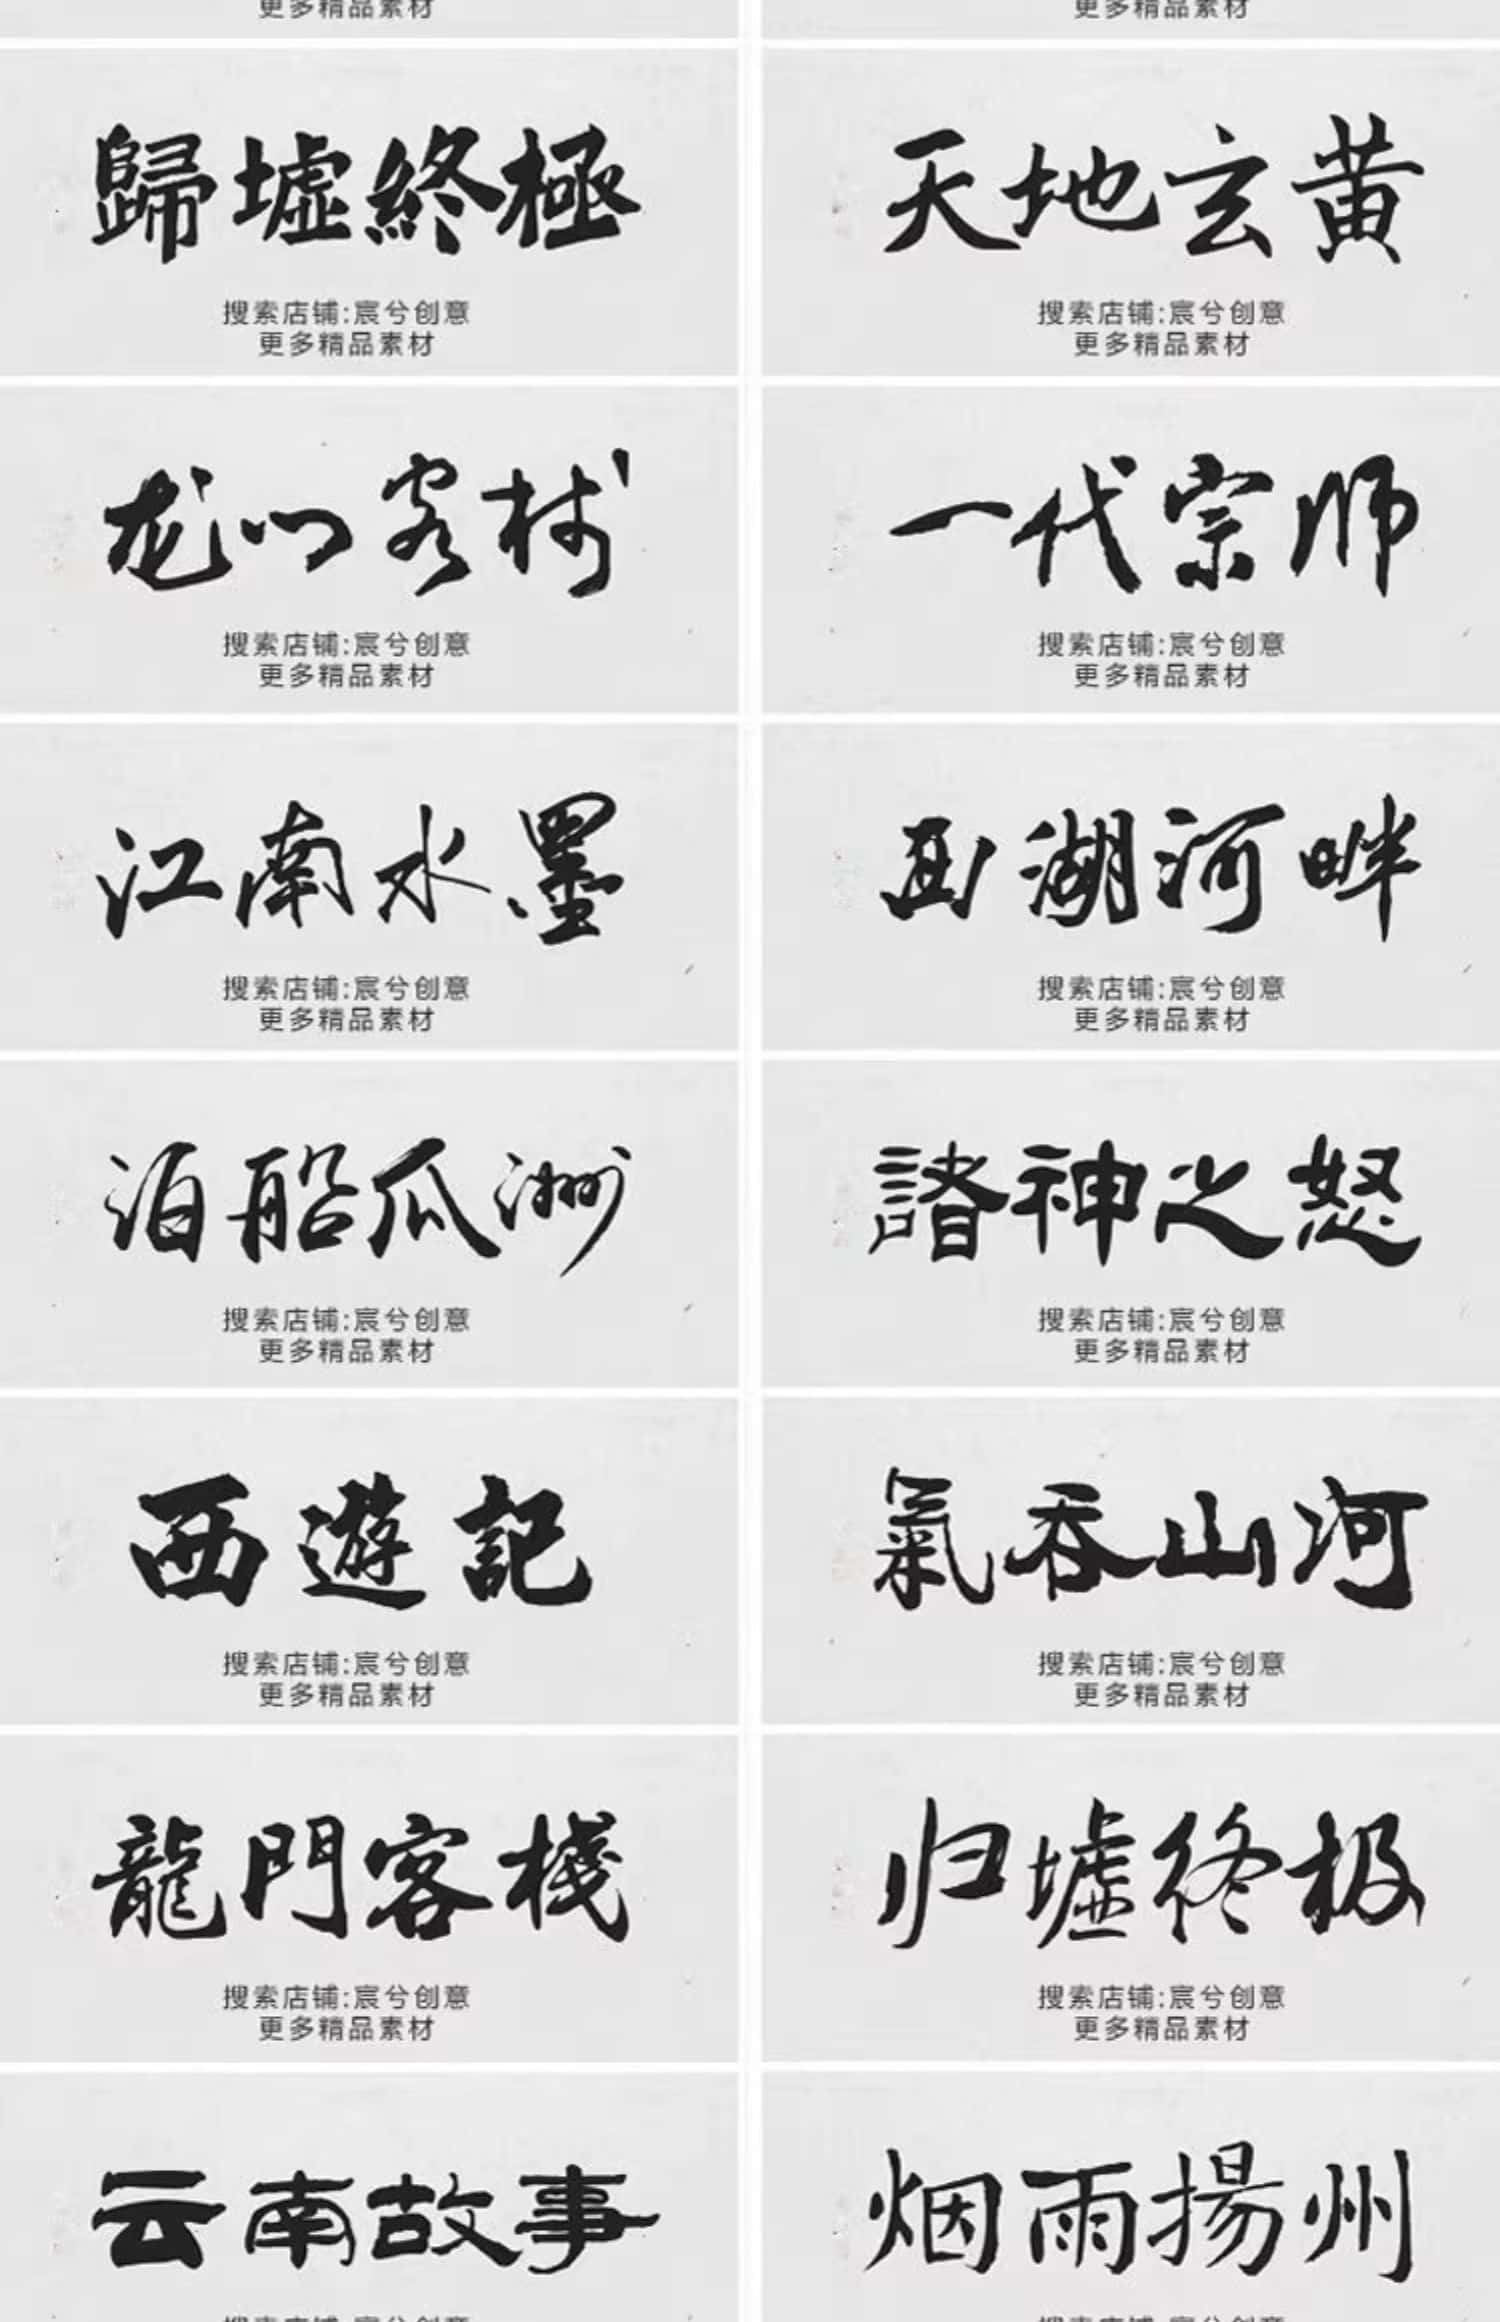 更多精品素材
更多精品素材
歸墟終極
搜索店铺:宸兮创意
更多精品素材
天地玄黄
搜索店铺:宸兮创意
更多精品素材
龙门客栈
搜索店铺:宸兮创意
更多精品素材
一代宗师
搜索店铺:宸兮创意
更多精品素材
江南水墨
搜索店铺:宸兮创意
更多精品素材
西湖河畔
搜索店铺:宸兮创意
更多精品素材
泊船瓜洲
搜索店铺:宸兮创意
更多精品素材
諸神之怒
搜索店铺:宸兮创意
更多精品素材
西遊記
搜索店铺:宸兮创意
更多精品素材
氣吞山河
搜索店铺:宸兮创意
更多精品素材
龍門客棧
搜索店铺:宸兮创意
更多精品素材
归墟终极
搜索店铺:宸兮创意
更多精品素材
云南故事
搜索店铺:宸兮创意
烟雨揚州
搜索店铺:宸兮创意